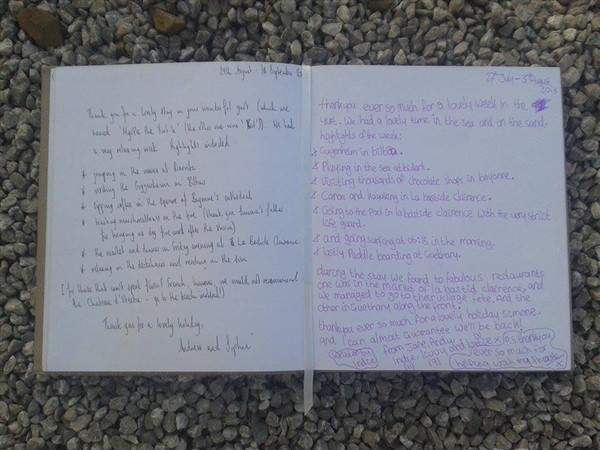 24th August - 1st September
Thank you for a lovely stay in your wonderful yurt (which we
named
a very relaxing week. Highlights included
jumping in the waves at Biarritz
visiting the Guggenheim in Bilbao
sipping coffee in the square of Bayonne's cathedral
toasting marshmallows on the fire (thank you
for bringing us dry fire wood after the storm)
the market and dinner on Friday evening at La Bastide Clairence
relaxing on the deckchairs and reading in the sun
[ For those that can't speak fluent French, however, we would not recommend
the Chateau d'
Thank you for a lovely holiday,
Andrew and Sophie
27th July - 3rd August
2013
thankyou ever so much for a lovely week in the
yurt. We had a lovely time in the sea and on the sand.
highlights of the week:
Guggenheim in bilbao.
Playing in the sea at bidart.
Visiting thousands of chocolate shops in bayonne.
Canoe and Kayaking in la bastide clairence.
Going to the Pool in la bastide clairence with the very strict
life guard.
and going surfing at 8:15 in the morning.
lastly Paddle boarding at Guethary.
during the stay we found to fabulous restaurants
one was in the market of la bastid claierence, and
we managed to go to their village fete. And the
other in Guethary along the front.
thankyou ever so much for a lovely holiday simone.
and I can almost guarantee we'll be back!
from Jane, Andy,
Indie, Lowy and
P.S thankyou
ever so much for
helping with my
written by
indie